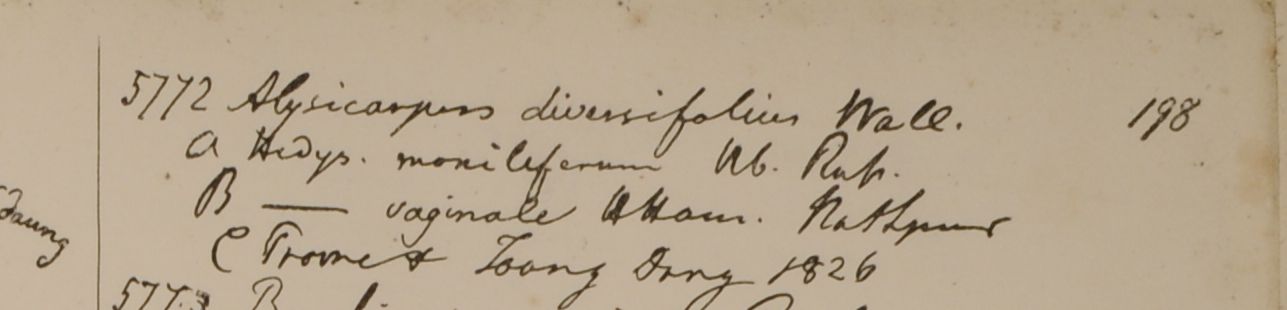 5772 Alysicarpus diversifolius Wall. 198
a Hedys. moniliferum Hb. Russ.
B — vaginale HHam. Nathpur
C Prome & Toong Dong 1826
daung
5773